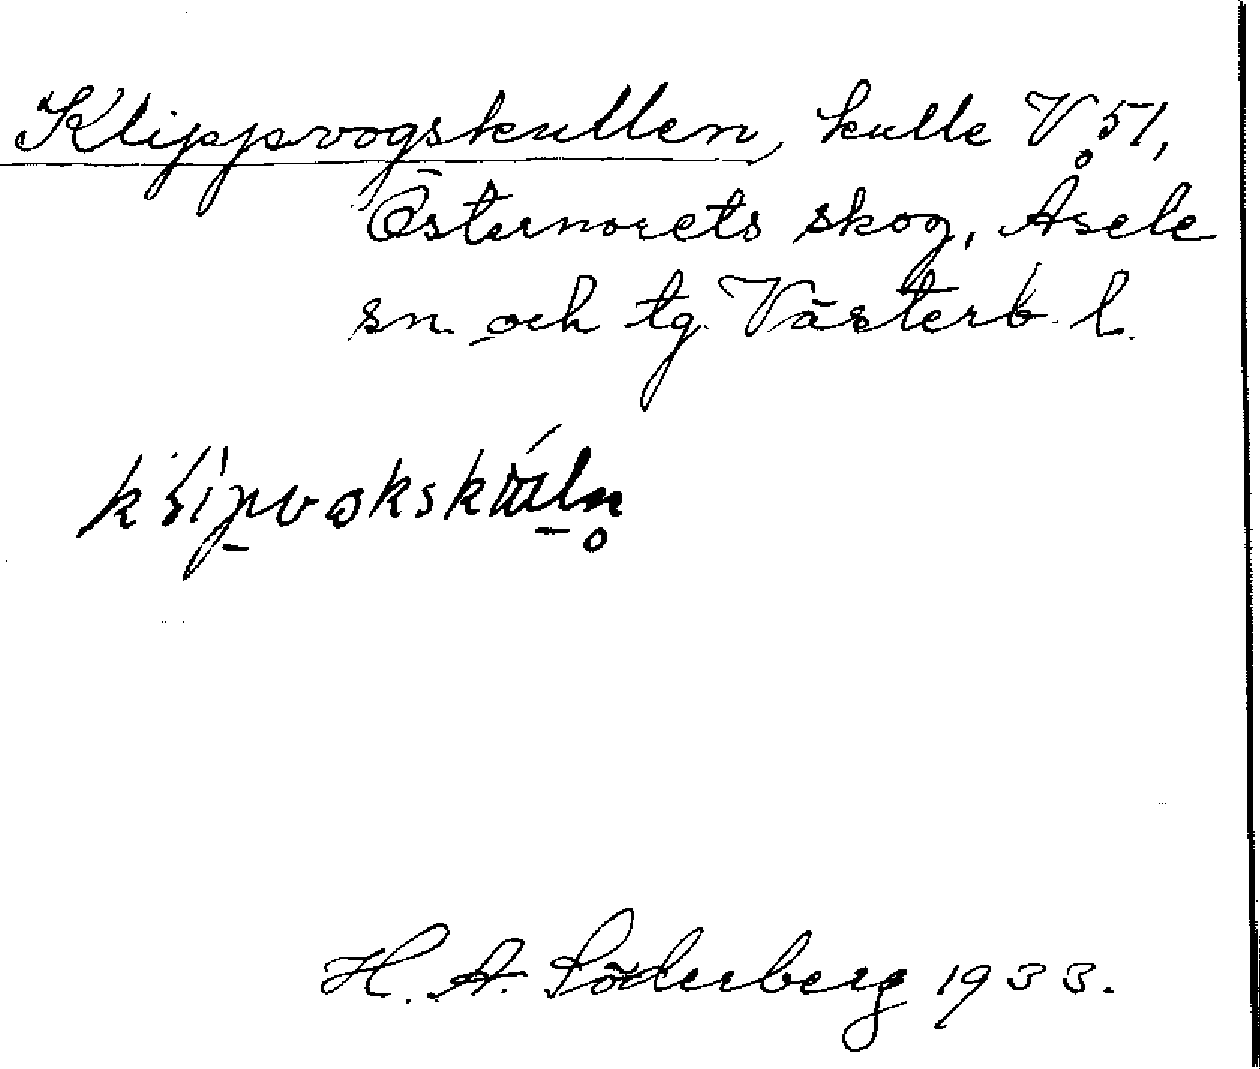 Klippvogskullen, kulle V 51,
Östernorets skog, Åsele
sn. och tg. Västerb. l.
H. A. Söderberg 1933.